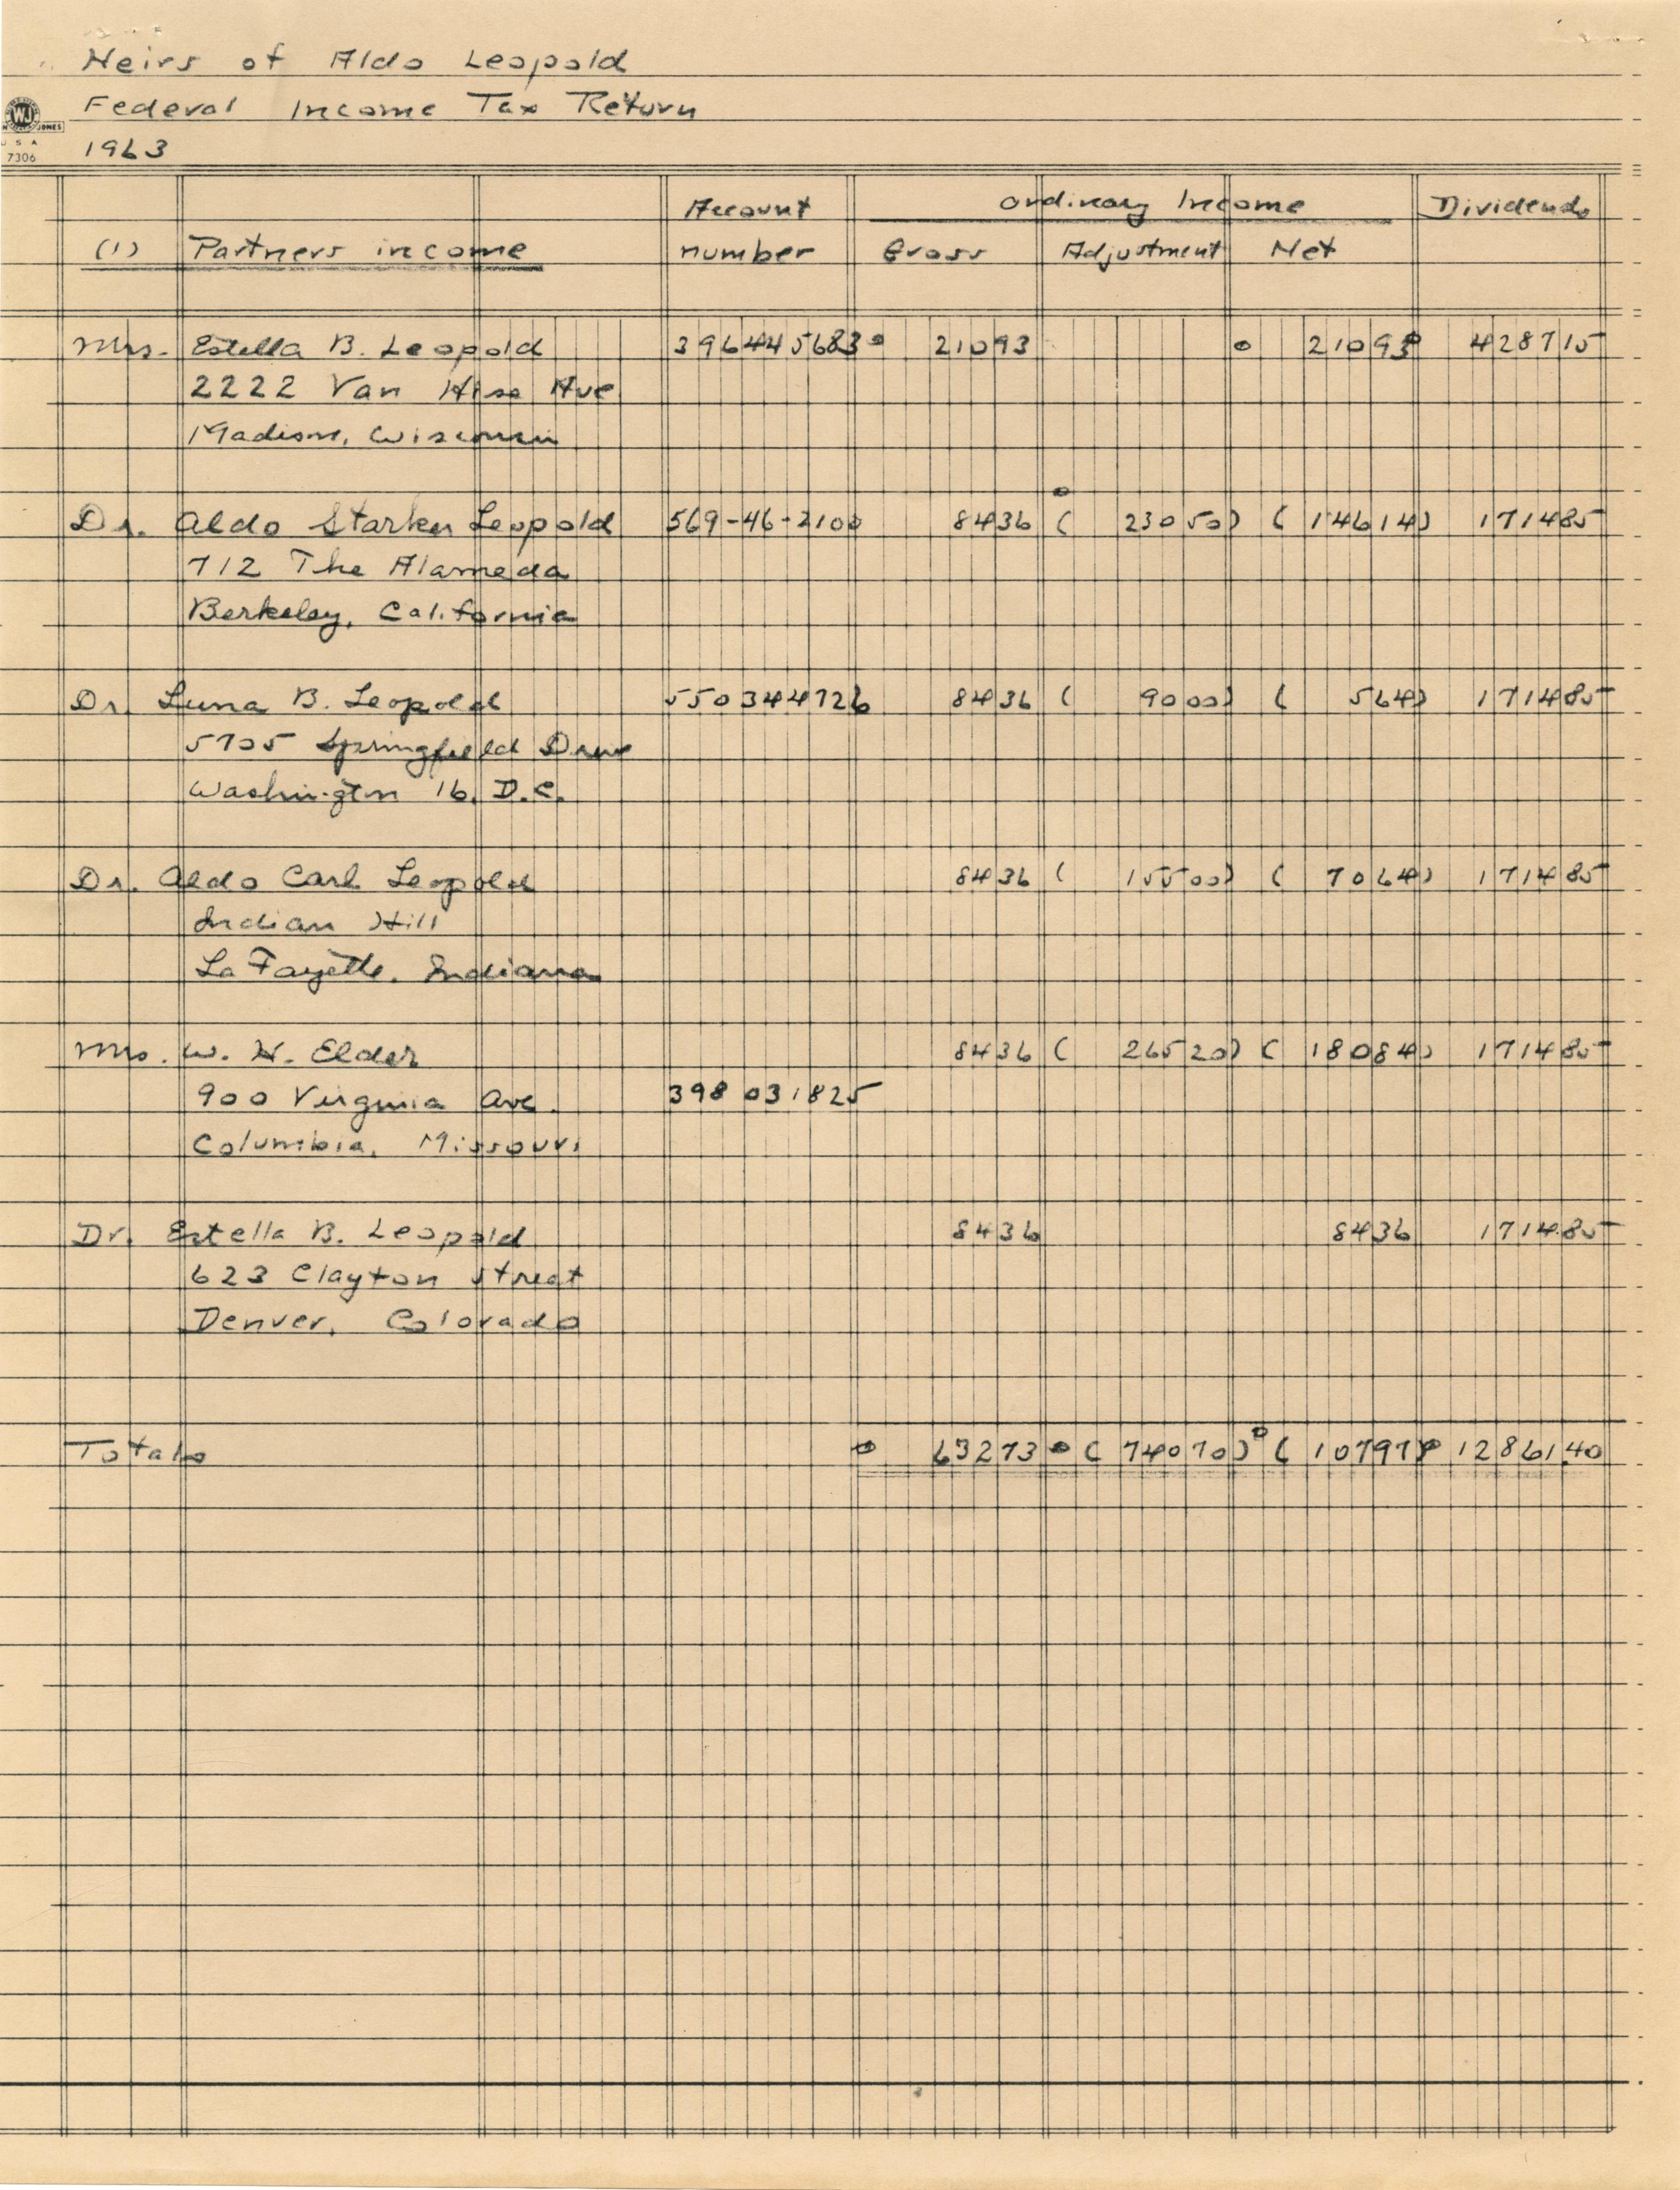 Heirs of Aldo Leopold
Federal Income Tax Return
WJ
JONES
U S A
7306
1963
Account Ordinary Income Dividends
(1) Partners income number Gross Adjustment Net
Mrs. Estella B. Leopold 3964445683 21093 21093 428715
2222 Van Hise Ave
Madison, Wisconsin
Dr. Aldo Starker Leopold 569-46-2100 8436 (23050) (14614) 171485
712 The Alameda
Berkeley, California
Dr. Luna B. Leopold 550344726 8436 (9000) (564) 171485
5705 Springfield Drive
Washington 16, D.C.
Dr. Aldo Carl Leopold 8436 (15500) (7064) 171485
Indian Hill
La Fayette, Indiana
Mrs. W. H. Elder 8436 (26520) (18084) 171485
900 Virginia Ave. 398 031825
Columbia, Missouri
Dr. Estella B. Leopold 8436 8436 171485
623 Clayton Street
Denver, Colorado
Totals 63273 (74070) (10797) 12861.40